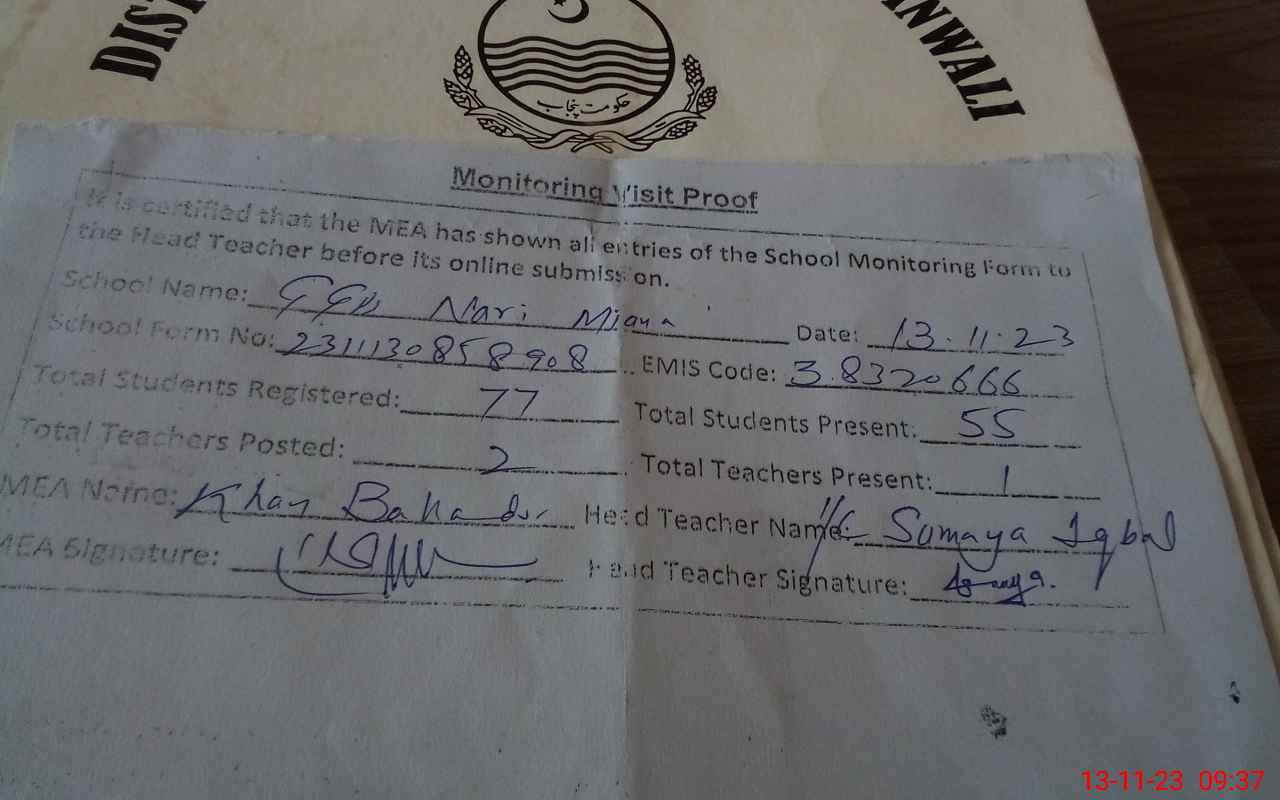 DIST
INWALI
حکومت پنجاب
Monitoring Visit Proof
It is certified that the MEA has shown all entries of the School Monitoring Form to
the Head Teacher before its online submission.
School Name: GGPS Nari Miana Date: 13.11.23
School Form No: 2311130858908 EMIS Code: 3.8320666
Total Students Registered: 77 Total Students Present: 55
Total Teachers Posted: 2 Total Teachers Present: 1
MEA Name: Khan Bahadur Head Teacher Name: I/C Sumaya Iqbal
MEA Signature: Head Teacher Signature:
13-11-23 09:37